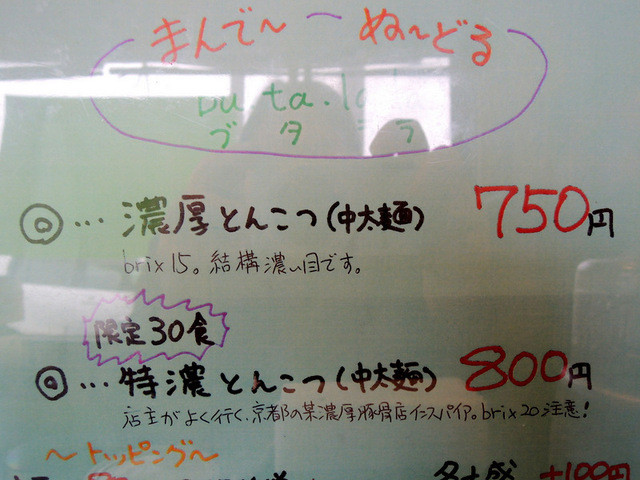 まんで〜 〜 ぬ〜どる
bu ta.la
ブタ ラ
◎…濃厚とんこつ(中太麺) 750円
brix15。結構濃い目です。
限定30食
◎…特濃とんこつ(中太麺) 800円
店主がよく行く、京都の某濃厚豚骨店インスパイア。brix20注意!
〜トッピング〜
+100円